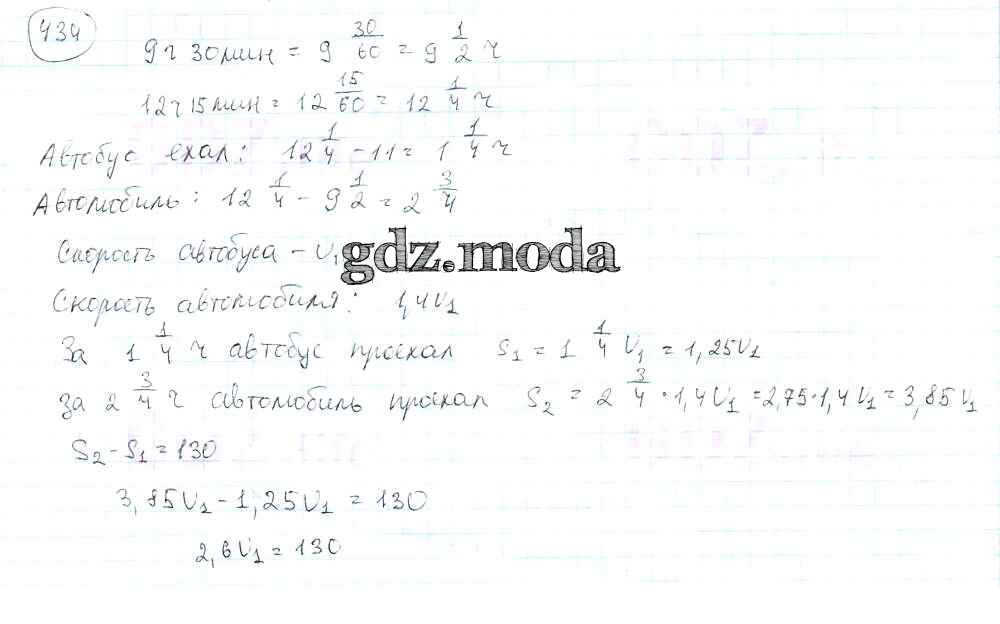 434
9 ч 30 мин = 9 30/60 = 9 1/2 ч
12 ч 15 мин = 12 15/60 = 12 1/4 ч
Автобус ехал: 12 1/4 - 11 = 1 1/4 ч
Автомобиль: 12 1/4 - 9 1/2 = 2 3/4
Скорость автобуса - υ₁
gdz.moda
Скорость автомобиля: 1,4υ₁
За 1 1/4 ч автобус проехал S₁ = 1 1/4 υ₁ = 1,25υ₁
за 2 3/4 ч автомобиль проехал S₂ = 2 3/4 · 1,4υ₁ = 2,75·1,4υ₁ = 3,85υ₁
S₂ - S₁ = 130
3,85υ₁ - 1,25υ₁ = 130
2,6υ₁ = 130